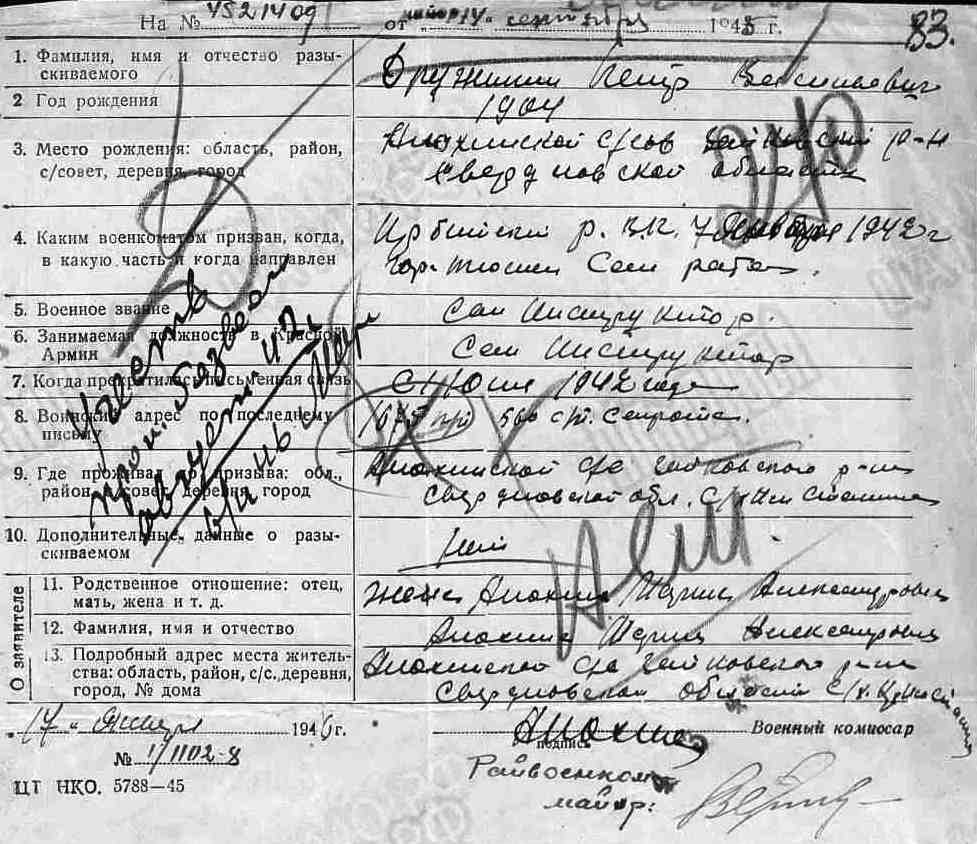 На № 4521409 от 1945 г. 83.
1. Фамилия, имя и отчество разы-
скиваемого
Дружинин Петр Васильевич
2 Год рождения
1904
3. Место рождения: область, район,
с/совет, деревня, город
Анохинской с/сов Зайковский р-н
Свердловской области
4. Каким военкоматом призван, когда,
в какую часть и когда направлен
Ирбитский р. В.К. 7 Января 1942 г
гор. Тюмень
5. Военное звание
Сан Инструктор.
6. Занимаемая должность в Красной
Армии
Сан Инструктор
7. Когда прекратилась письменная связь
С Июня 1942 года
8. Воинский адрес по последнему
письму
1675 п/п 560 с/п.
9. Где проживал до призыва: обл.,
район, с/совет, деревня, город
Анохинской с/с Зайковского р-на
Свердловской обл.
10. Дополнительные данные о разы-
скиваемом
нет
Нет.
О заявителе
11. Родственное отношение: отец,
мать, жена и т. д.
жена Анохина Мария Александровна
12. Фамилия, имя и отчество
Анохина Мария Александровна
13. Подробный адрес места житель-
ства: область, район, с/с, деревня,
город, № дома
Анохинской с/с Зайковского р-на
Свердловской области
Учесть
проп. без вести
"17" Января 1946 г.
Анохина Военный комиссар
подпись
№ 1/1102-8
Райвоенком
майор:
ЦТ НКО. 5788—45